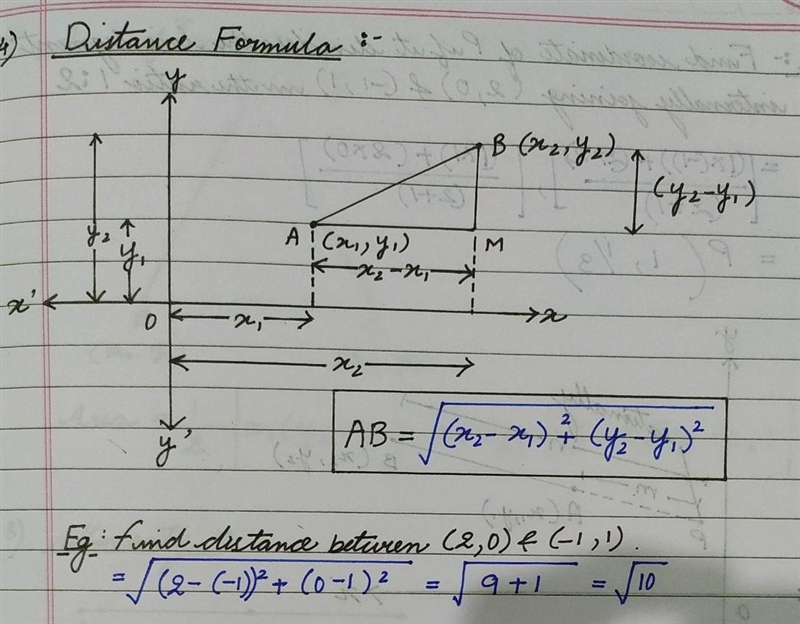 4) Distance Formula :-
y
B (x₂, y₂)
(y₂-y₁)
y₂
y₁
A (x₁, y₁) M
x₂-x₁
x' O x₁ x
x₂
y'
AB = √(x₂-x₁)² + (y₂-y₁)²
Eg: find distance between (2,0) & (-1,1).
= √(2-(-1))² + (0-1)² = √9+1 = √10